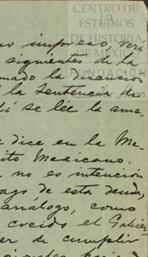 CENTRO DE
ESTUDIOS
DE HISTORIA
DE MÉXICO
FUNDACIÓN
impreso, será
siguientes de la
mado la
la Sentencia de
se lee la ame
dice en la Me
ito Mexicano.
no es intención
ago de esta deuda,
análogo, como
creído el Gobier
er de cumplir